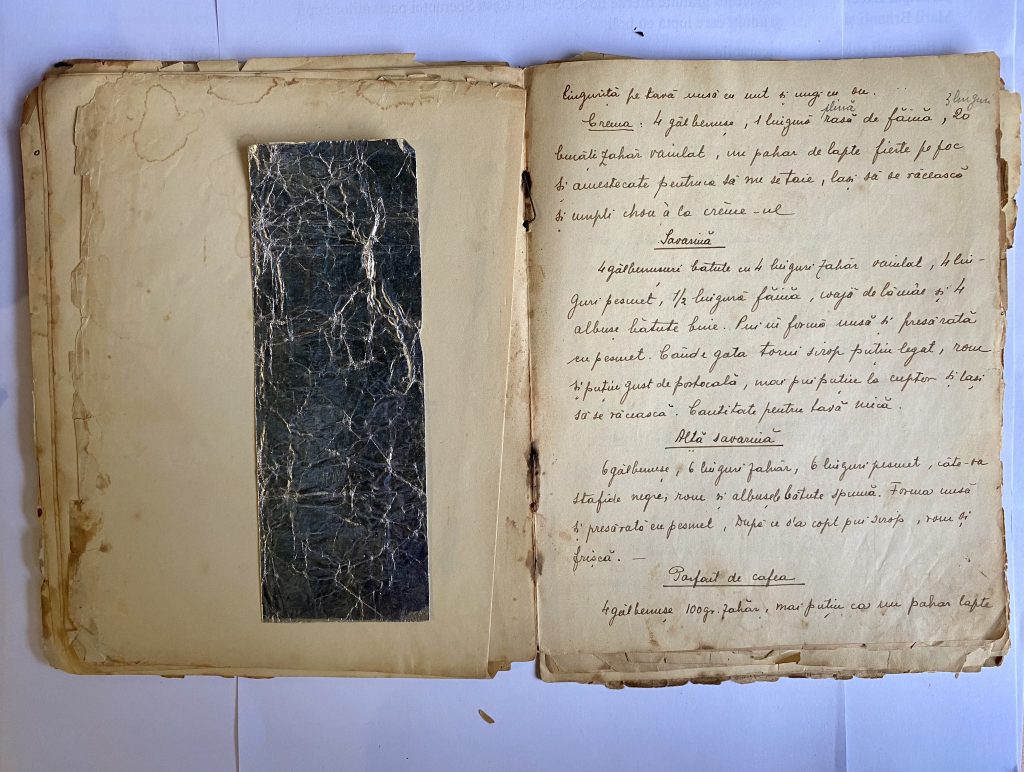 lingurită pe tavă unsă cu unt și ungi cu ou.
plină 3 linguri
Crema : 4 gălbenușe, 1 lingură rasă de făină, 20
bucăti zahăr vanilat, un pahar de lapte fierte pe foc
și amestecate pentruca să nu se taie, lași să se răcească
și umpli chou à la crème-ul
Savarină
4 gălbenusuri bătute cu 4 linguri zahăr vanilat, 4 lin-
guri pesmet, 1/2 lingură făină, coajă de lămâe și 4
albușe bătute bine. Pui in formă unsă și presărată
cu pesmet. Când e gata torni sirop puțin legat, rom
și puțin gust de portocală, mai pui puțin la cuptor și lași
să se răcească. Cantitate pentru tavă mică.
Altă savarină
6 gălbenușe, 6 linguri zahăr, 6 linguri pesmet, câte-va
stafide negre, rom și albușele bătute spumă. Forma unsă
și presărată cu pesmet, După ce s'a copt pui sirop, rom și
frișcă. —
Parfait de cafea
4 gălbenușe 100 gr. zahăr, mai puțin ca un pahar lapte